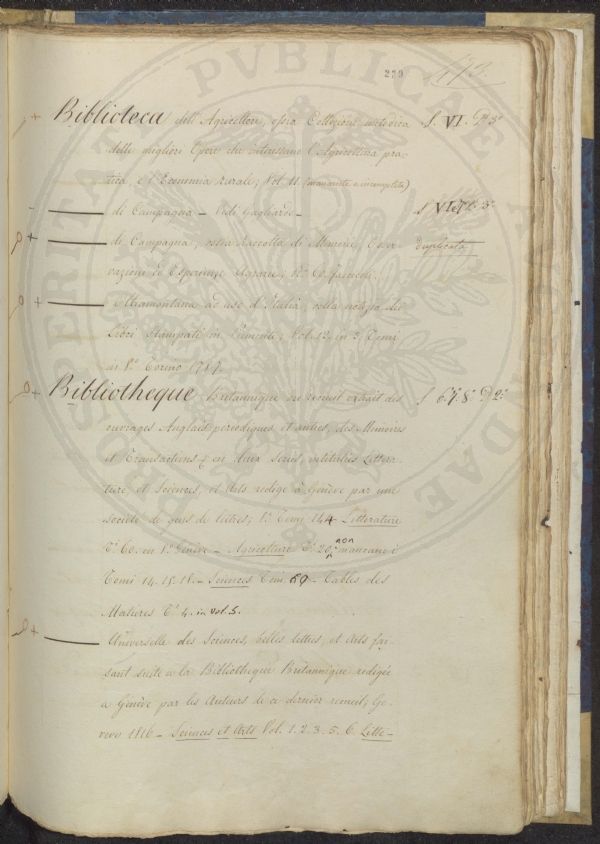 279 473.
Biblioteca dell'Agricoltore, ossia Collezione metodica S. VI. Pto 3o
delle migliori Opere che interessano l'Agricoltura pra-
tica, e l'Economia Rurale; Vol. 11. (mancante e incompleta)
di Campagna - Vedi Gagliardo - S VI
di Campagna, ossia Raccolta di Memorie, Osser duplicata
vazioni ed Esperienze Agrarie, No 60. fascicoli.
Oltramontana ad uso d'Italia, colla notizia dei
Libri Stampati in Piemonte; Vol. 12. in 3. Tomi
in 8o Torino 1787.
Bibliotheque Britannique ou recueil extrait des S 6. 7. 8. Po 2o
ouvrages Anglais periodiques et autres, des Memoires
et Transactions; en deux series, intitulées Littera-
ture, et Sciences, et Arts redigé à Genève par une
societé de gens de lettres; Tomi 144 - Litterature
Ti 60. en 8o Genève - Agricolture Ti 20: non mancano i
Tomi 14. 15. 18. - Sciences Tomi 60 - Tables des
Matieres Ti 4. in vol. 5.
Universelle des Sciences, belles lettres, et Arts fai-
sant suite a la Bibliotheque Britannique redigée
a Genève par les Auteurs de ce dernier recueil; Ge-
neve 1816 - Sciences et Arts Vol. 1. 2. 3. 5. 6. Litte-